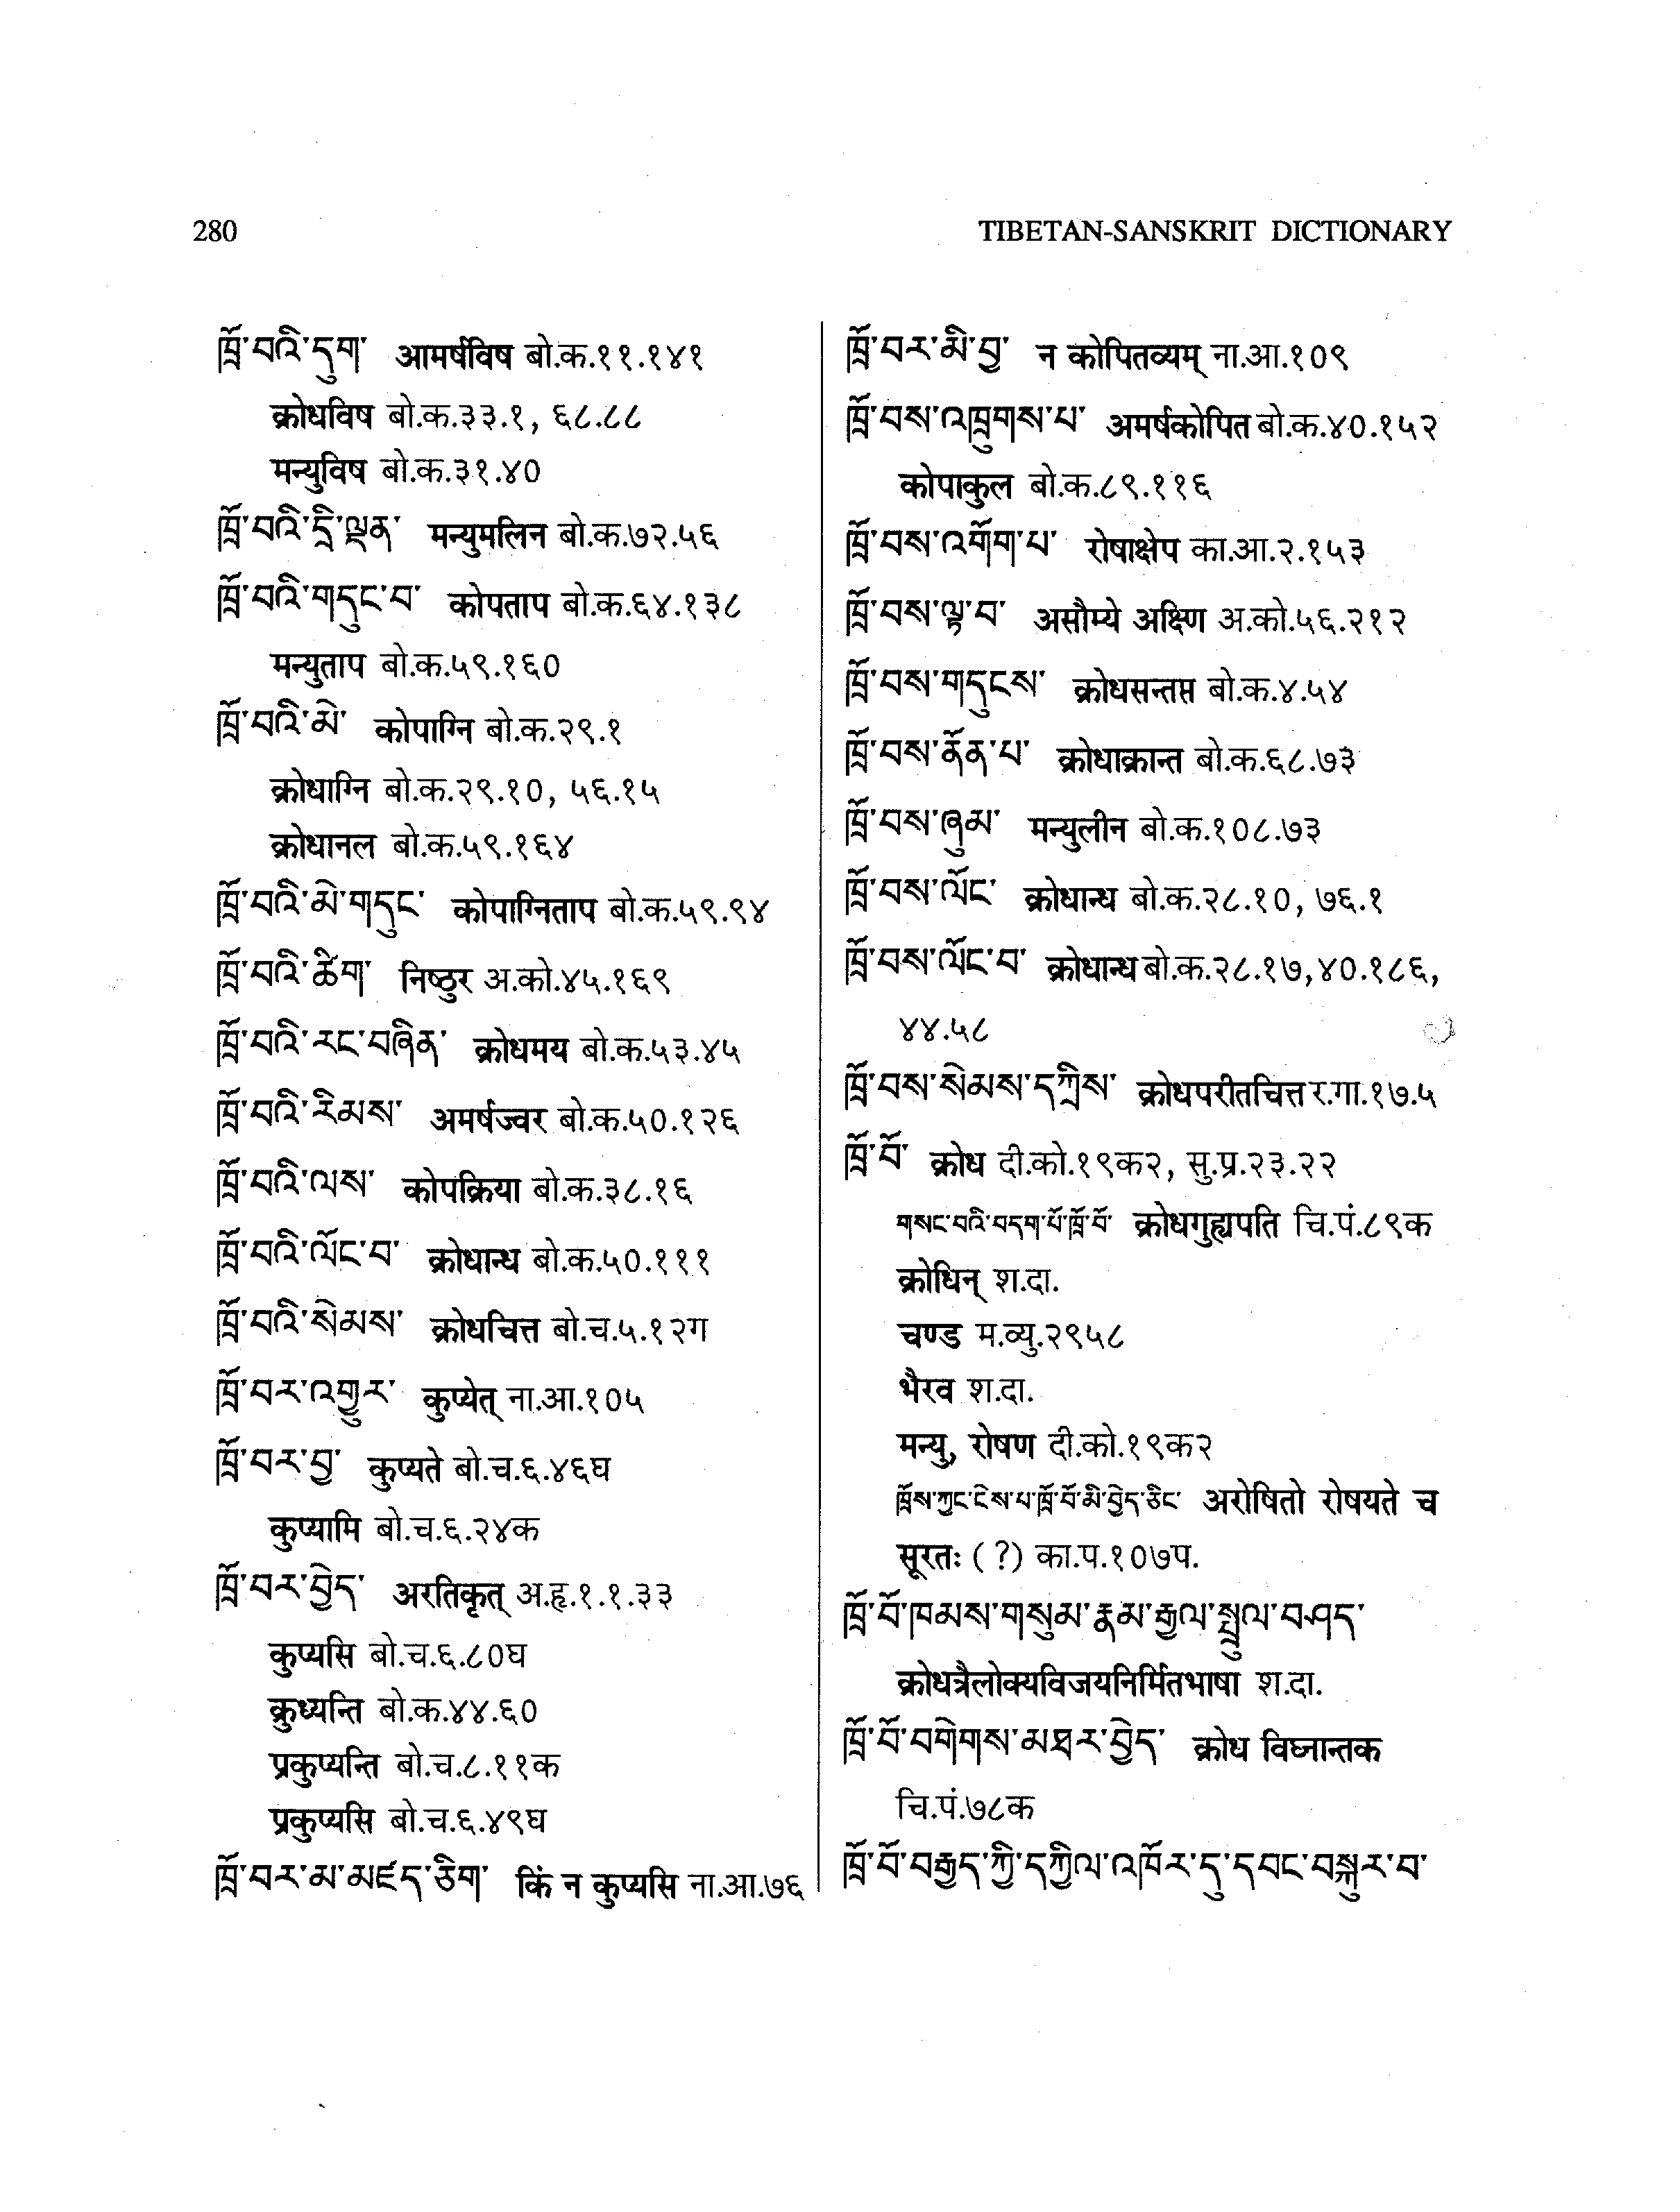 280
TIBETAN-SANSKRIT DICTIONARY
ཁྲོ་བའི་དུག་ आमर्षविष बो.क.११.१४१
क्रोधविष बो.क.३३.१, ६८.८८
मन्युविष बो.क.३१.४०
ཁྲོ་བའི་དྲི་ལྡན་ मन्युमलिन बो.क.७२.५६
ཁྲོ་བའི་གདུང་བ་ कोपताप बो.क.६४.१३८
मन्युताप बो.क.५९.१६०
ཁྲོ་བའི་མེ་ कोपाग्नि बो.क.२९.१
क्रोधाग्नि बो.क.२९.१०, ५६.१५
क्रोधानल बो.क.५९.१६४
ཁྲོ་བའི་མེ་གདུང་ कोपाग्निताप बो.क.५९.९४
ཁྲོ་བའི་ཚིག་ निष्ठुर अ.को.४५.१६९
ཁྲོ་བའི་རང་བཞིན་ क्रोधमय बो.क.५३.४५
ཁྲོ་བའི་རིམས་ अमर्षज्वर बो.क.५०.१२६
ཁྲོ་བའི་ལས་ कोपक्रिया बो.क.३८.१६
ཁྲོ་བའི་ལོང་བ་ क्रोधान्ध बो.क.५०.१११
ཁྲོ་བའི་སེམས་ क्रोधचित्त बो.च.५.१२ग
ཁྲོ་བར་འགྱུར་ कुप्येत् ना.आ.१०५
ཁྲོ་བར་བྱ་ कुप्यते बो.च.६.४६घ
कुप्यामि बो.च.६.२४क
ཁྲོ་བར་བྱེད་ अरतिकृत् अ.हृ.१.१.३३
कुप्यसि बो.च.६.८०घ
क्रुध्यन्ति बो.क.४४.६०
प्रकुप्यन्ति बो.च.८.११क
प्रकुप्यसि बो.च.६.४९घ
ཁྲོ་བར་མ་མཛད་ཅིག་ किं न कुप्यसि ना.आ.७६
ཁྲོ་བར་མི་བྱ་ न कोपितव्यम् ना.आ.१०९
ཁྲོ་བས་འཁྲུགས་པ་ अमर्षकोपित बो.क.४०.१५२
कोपाकुल बो.क.८९.११६
ཁྲོ་བས་འགོག་པ་ रोषाक्षेप का.आ.२.१५३
ཁྲོ་བས་ལྟ་བ་ असौम्ये अक्ष्णि अ.को.५६.२१२
ཁྲོ་བས་གདུངས་ क्रोधसन्तप्त बो.क.४.५४
ཁྲོ་བས་ནོན་པ་ क्रोधाक्रान्त बो.क.६८.७३
ཁྲོ་བས་ཞུམ་ मन्युलीन बो.क.१०८.७३
ཁྲོ་བས་ལོང་ क्रोधान्ध बो.क.२८.१०, ७६.१
ཁྲོ་བས་ལོང་བ་ क्रोधान्ध बो.क.२८.१७,४०.१८६,
४४.५८
ཁྲོ་བས་སེམས་དཀྲིས་ क्रोधपरीतचित्त र.गा.१७.५
ཁྲོ་བོ་ क्रोध दी.को.१९क२, सु.प्र.२३.२२
གསང་བའི་བདག་པོ་ཁྲོ་བོ་ क्रोधगुह्यपति चि.पं.८९क
क्रोधिन् श.दा.
चण्ड म.व्यु.२९५८
भैरव श.दा.
मन्यु, रोषण दी.को.१९क२
ཁྲོས་ཀྱང་ངེས་པ་ཁྲོ་བོ་མི་བྱེད་ཅིང་ अरोषितो रोषयते च
सूरतः (?) का.प.१०७प.
ཁྲོ་བོ་ཁམས་གསུམ་རྣམ་རྒྱལ་སྤྲུལ་བཤད་
क्रोधत्रैलोक्यविजयनिर्मितभाषा श.दा.
ཁྲོ་བོ་བགེགས་མཐར་བྱེད་ क्रोध विघ्नान्तक
चि.पं.७८क
ཁྲོ་བོ་བརྒྱད་ཀྱི་དཀྱིལ་འཁོར་དུ་དབང་བསྐུར་བ་